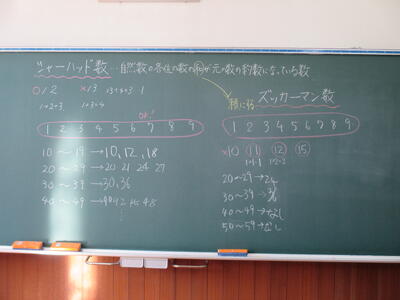 シャーハッド数…自然数の各位の数の和が元の数の約数になっている数
○12 ×13 13÷4=3…1
1+2=3 1+3=4
OK!
1 2 3 4 5 6 7 8 9
10〜19→10,12,18
20〜29→20 21 24 27
30〜39→30,36
40〜49→40 42 45 48
積に変
ズッカーマン数
1 2 3 4 5 6 7 8 9
×10 11 12 15
1×1=1 1×2=2
20〜29→24
30〜39→36
40〜49→なし
50〜59→なし